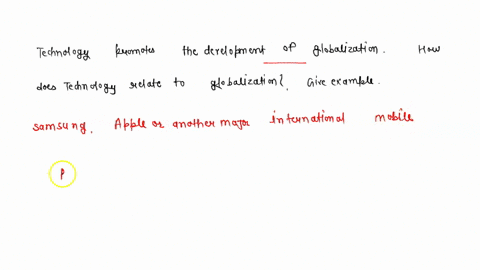 Technology promotes the development of globalization. How
does Technology relate to globalization?. Give example.
Samsung, Apple or another major international mobile
P